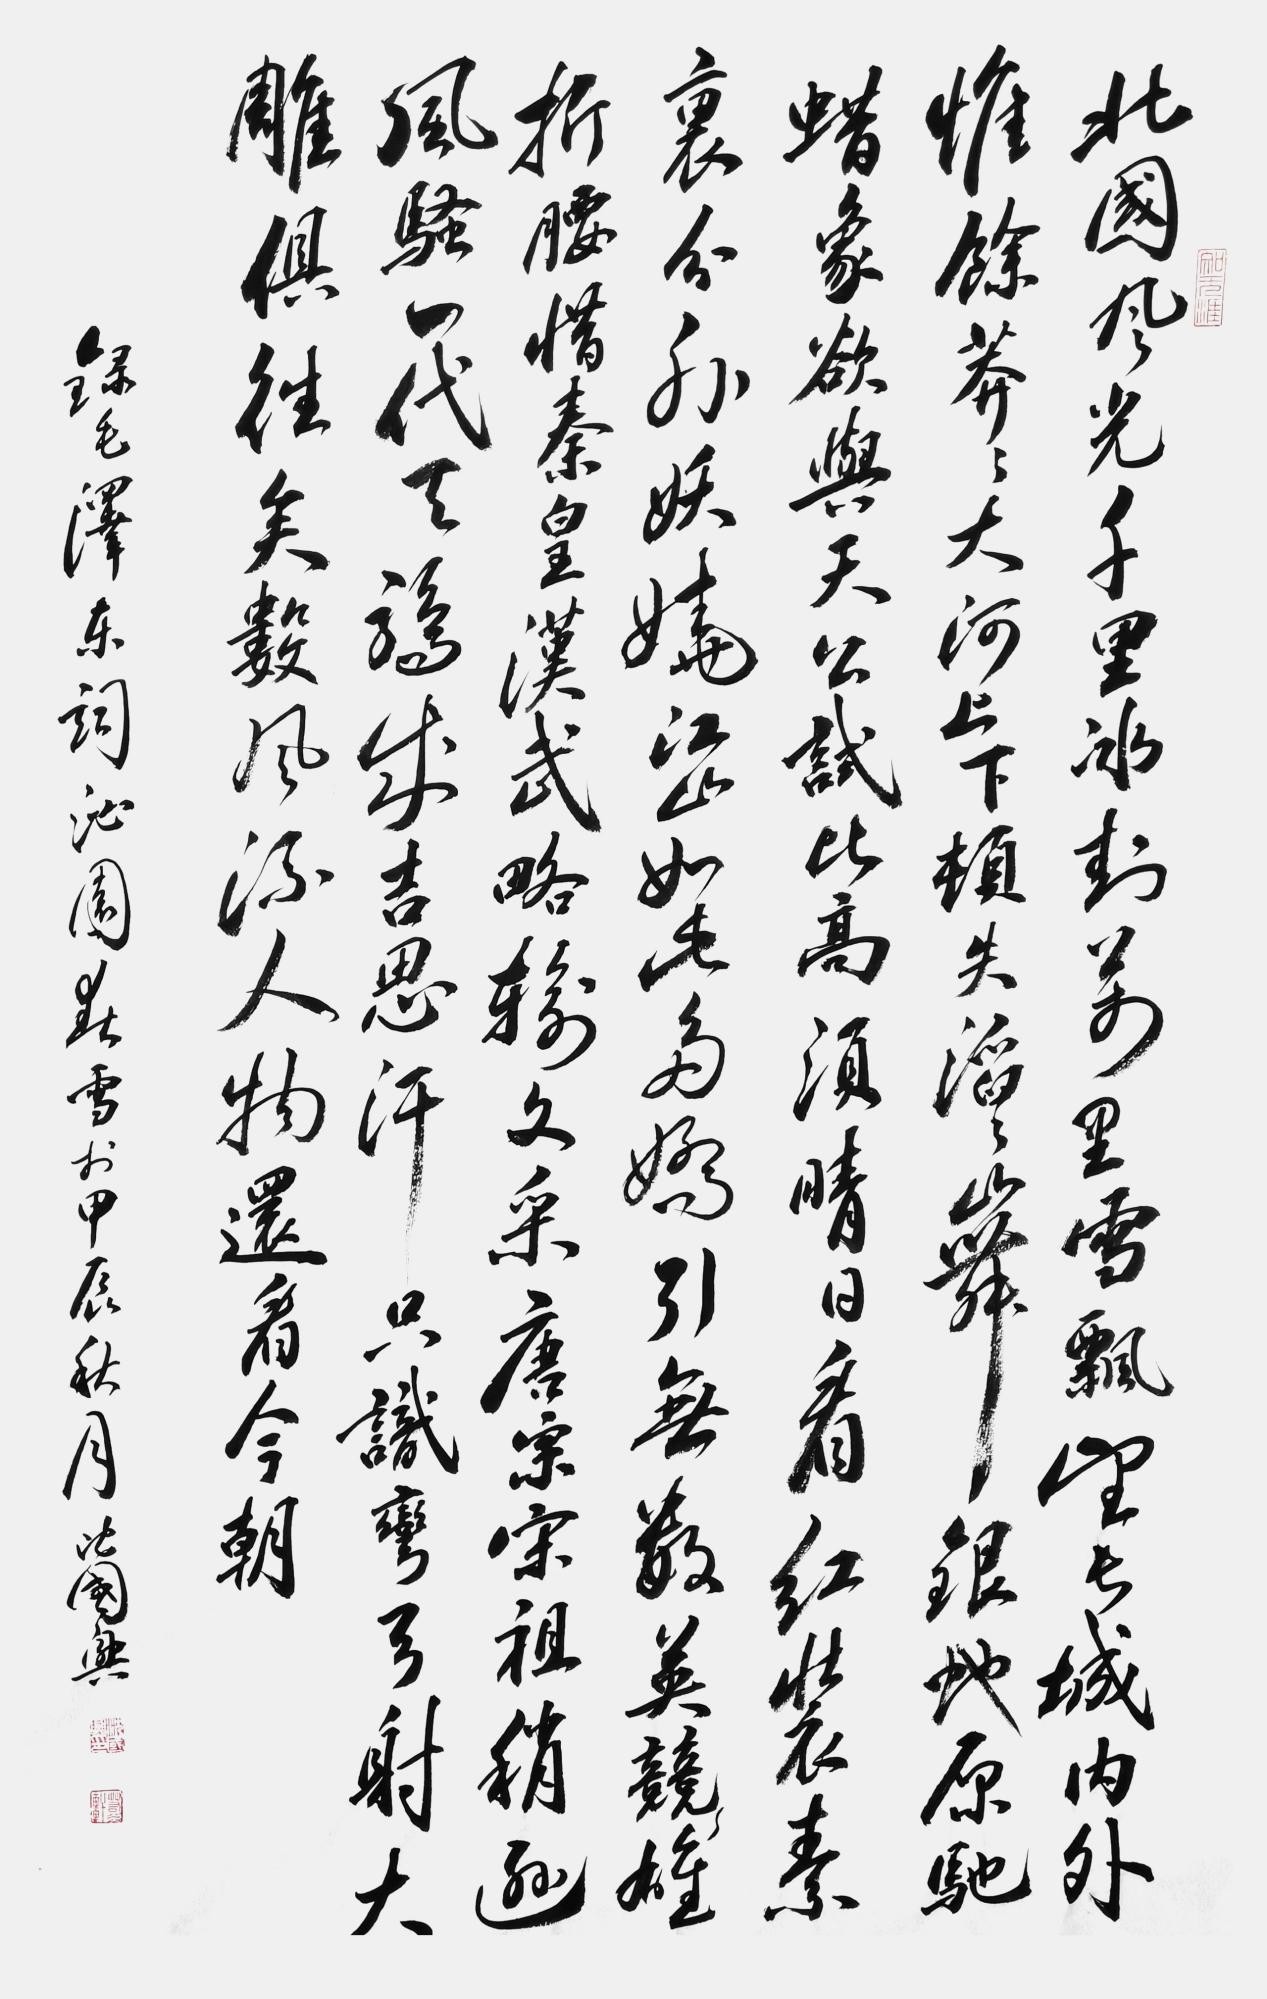 北國风光千里冰封萬里雪飄望长城内外
惟餘莽々大河上下頓失滔々山舞銀蛇原馳
蜡象欲與天公試比高須晴日看红裝素
裹分外妖嬈江山如此多嬌引無數英競雄
折腰惜秦皇漢武略輸文采唐宗宋祖稍遜
風騷一代天驕成吉思汗只識彎弓射大
雕俱往矣數风流人物還看今朝
錄毛澤东詞沁園春雪於甲辰秋月沈國興
知无涯